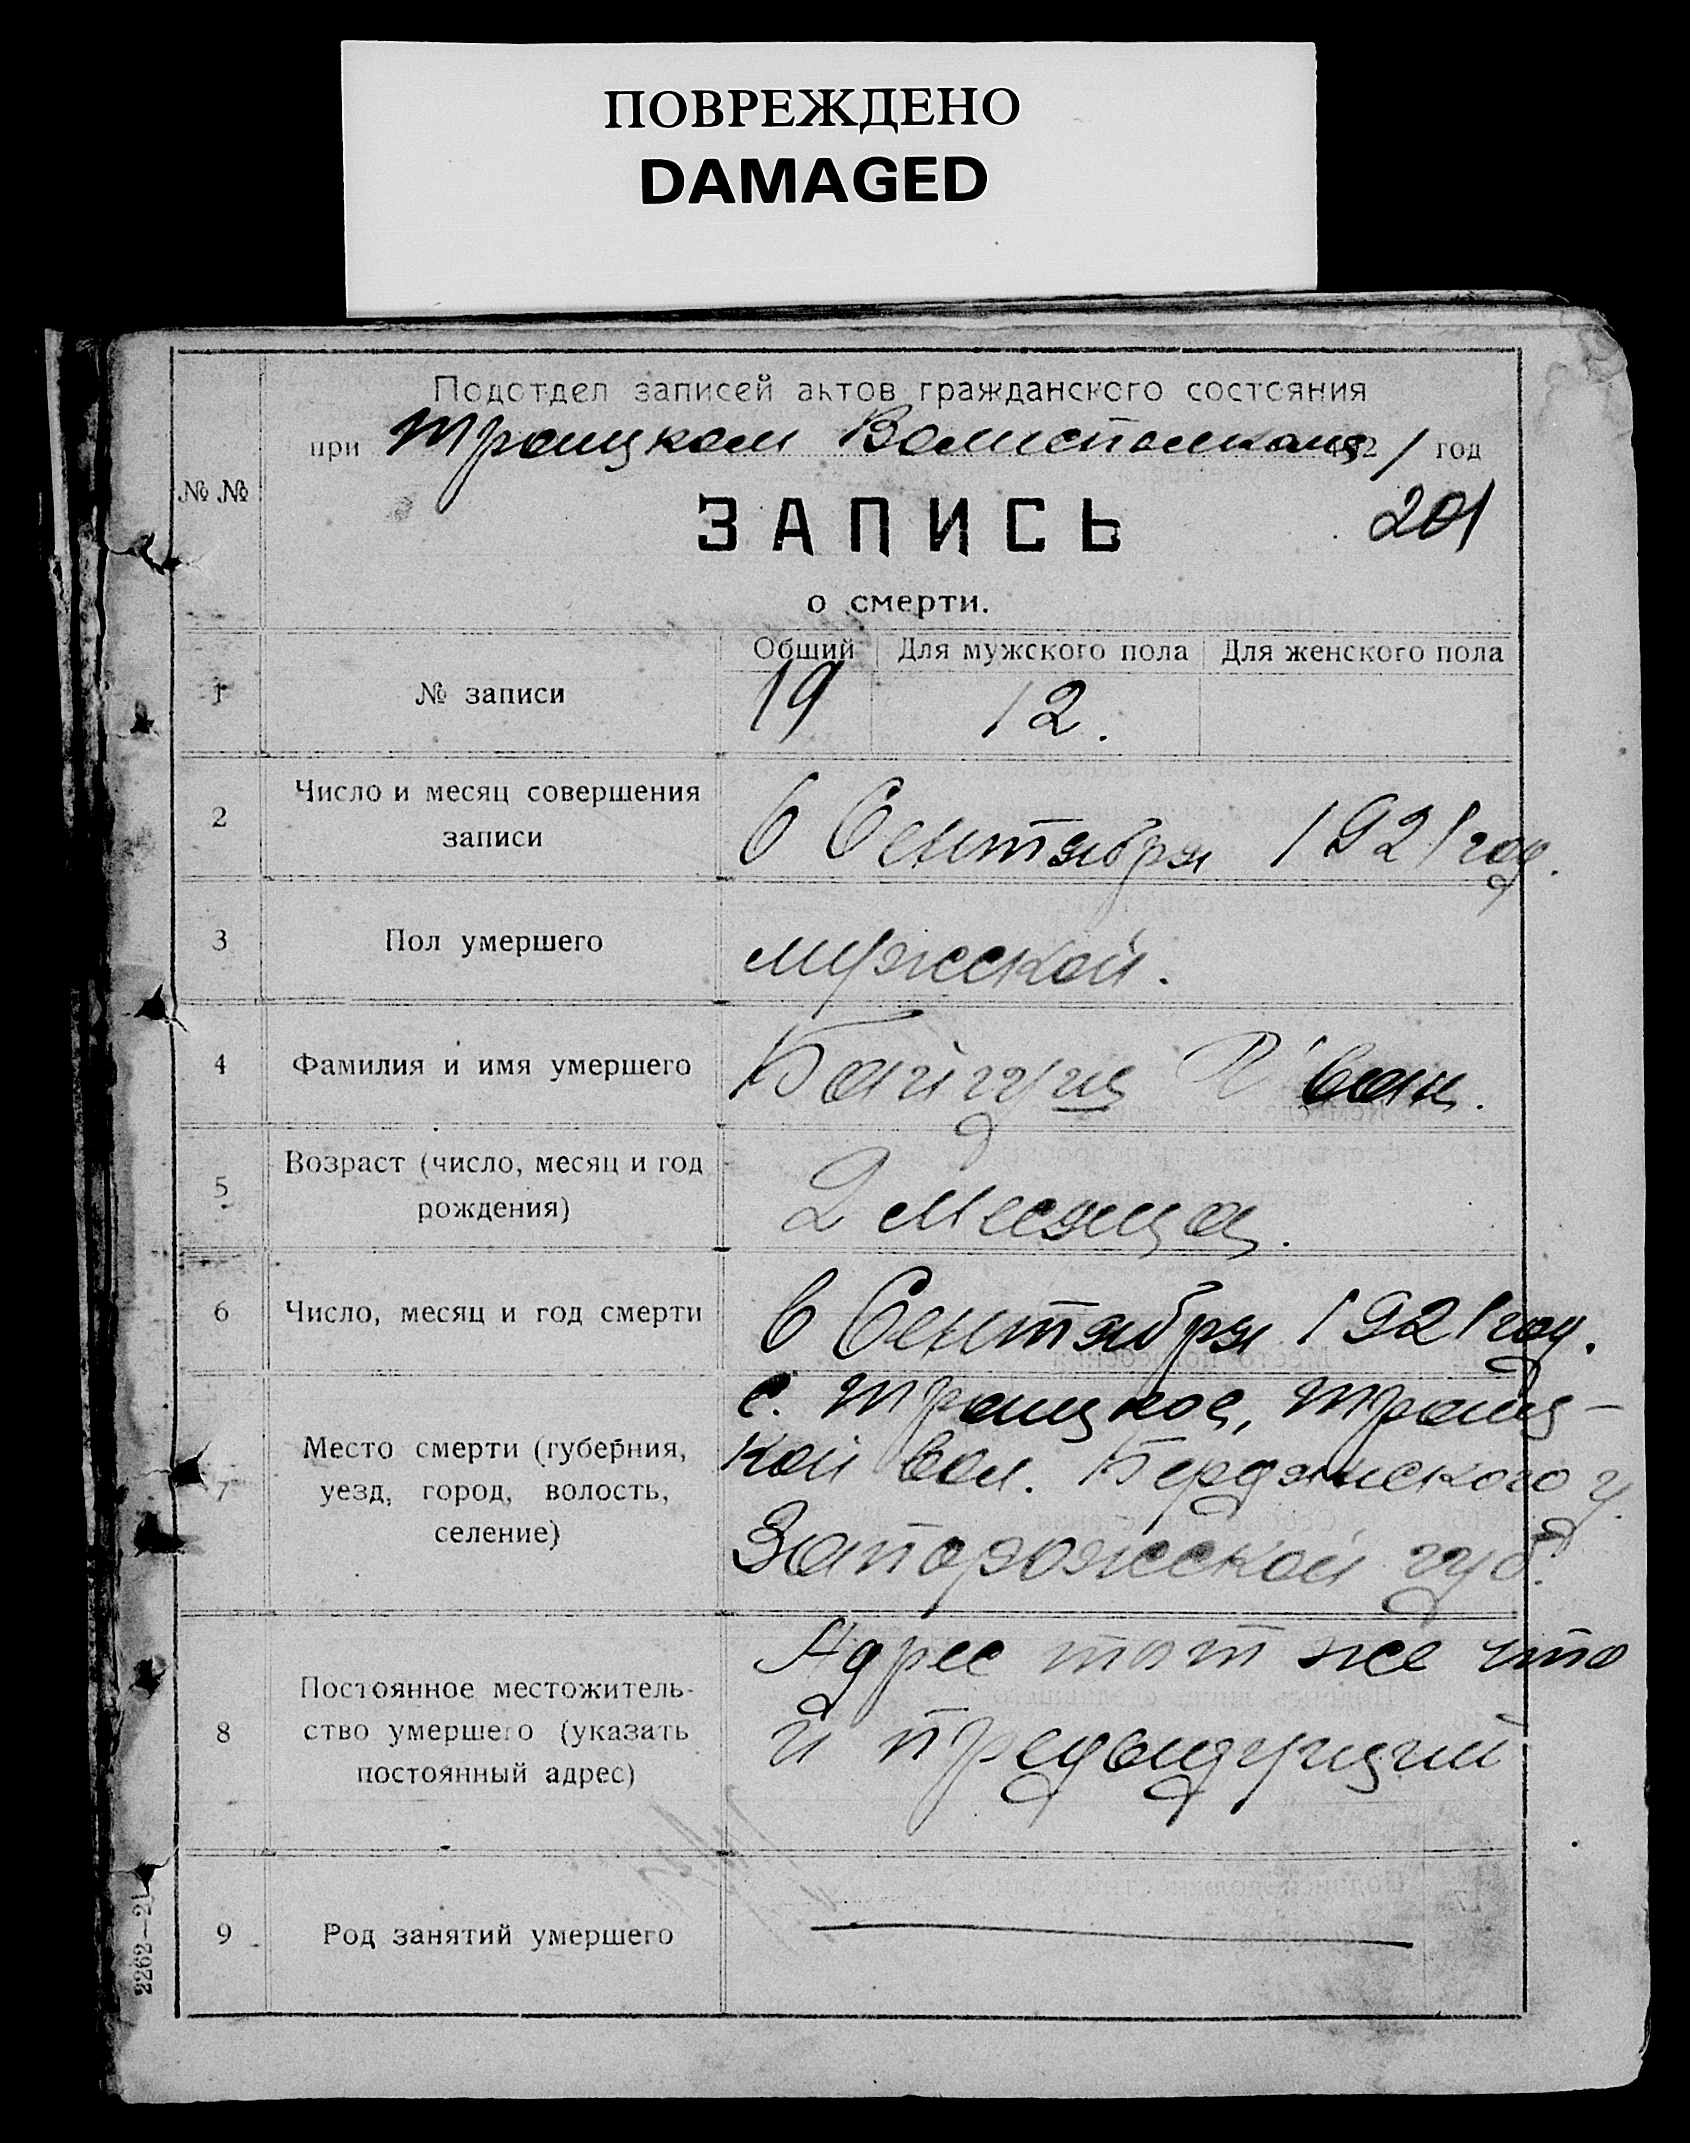 ПОВРЕЖДЕНО
DAMAGED
Подотдел записей актов гражданского состояния
при Троицком Волисполкоме 1921 год
№ №
ЗАПИСЬ
201
о смерти.
Общий Для мужского пола Для женского пола
1 № записи 19 12.
2 Число и месяц совершения
записи
6 Сентября 1921 год.
3 Пол умершего мужской.
4 Фамилия и имя умершего Иван.
5 Возраст (число, месяц и год
рождения)
2 месяца.
6 Число, месяц и год смерти 6 Сентября 1921 год.
7 Место смерти (губерния,
уезд, город, волость,
селение)
с. Троицкое, Троиц-
кой вол. Бердянского у.
Запорожской губ.
8 Постоянное местожитель-
ство умершего (указать
постоянный адрес)
Адрес тот же что
и предыдущий
9 Род занятий умершего
2262—21